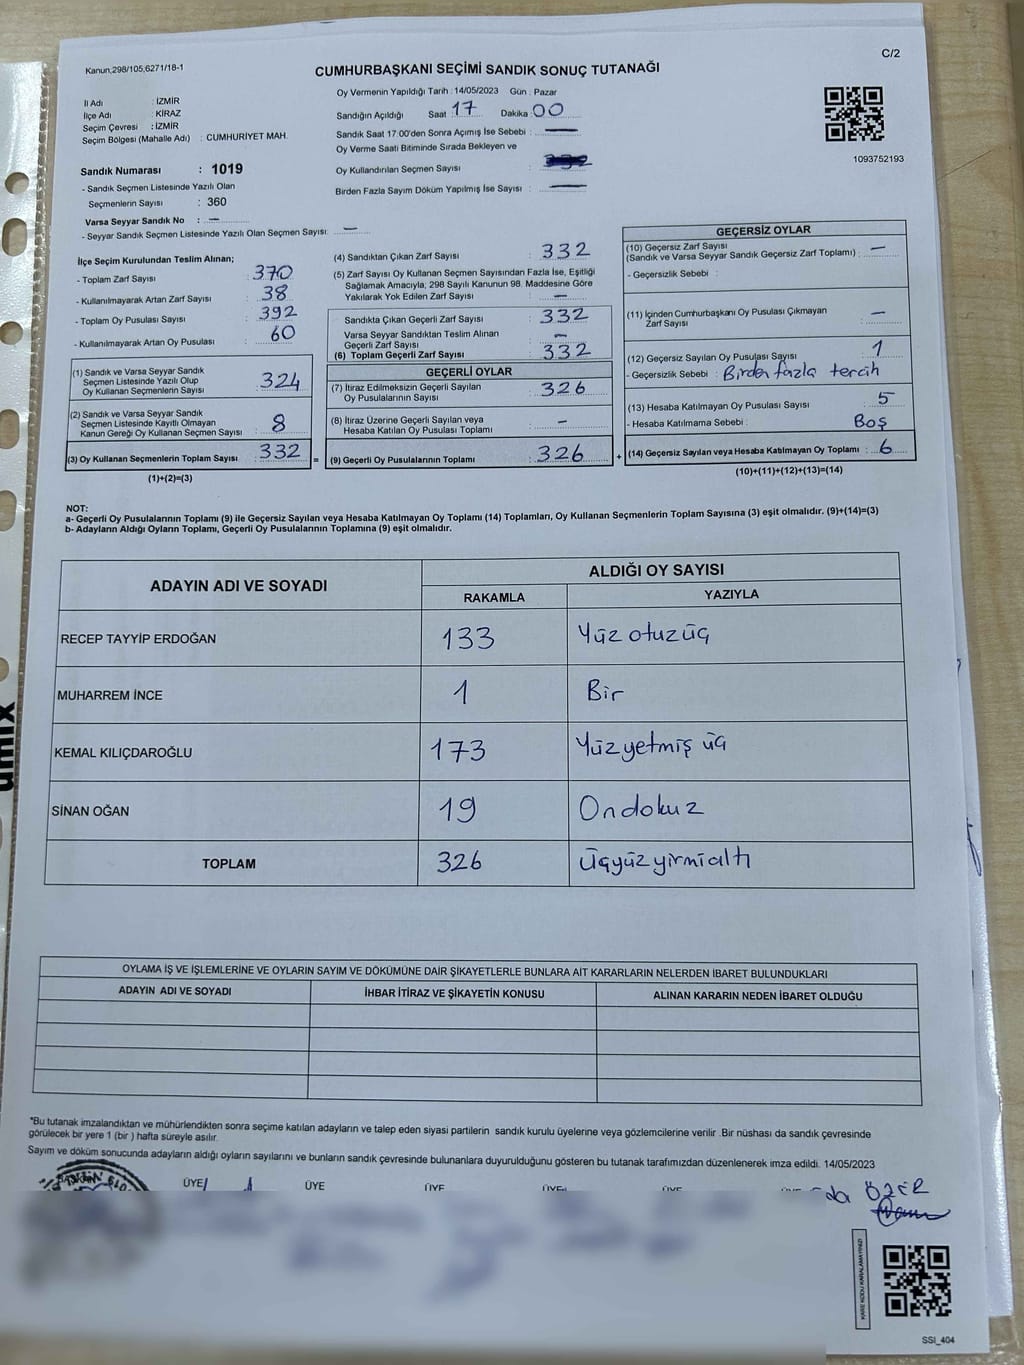 C/2
Kanun,298/105,6271/18-1
CUMHURBAŞKANI SEÇİMİ SANDIK SONUÇ TUTANAĞI
İl Adı : İZMİR
İlçe Adı : KİRAZ
Seçim Çevresi : İZMİR
Seçim Bölgesi (Mahalle Adı) : CUMHURİYET MAH.
Sandık Numarası : 1019
- Sandık Seçmen Listesinde Yazılı Olan
Seçmenlerin Sayısı : 360
Varsa Seyyar Sandık No : —
- Seyyar Sandık Seçmen Listesinde Yazılı Olan Seçmen Sayısı: —
Oy Vermenin Yapıldığı Tarih : 14/05/2023 Gün : Pazar
Sandığın Açıldığı Saat : 17 Dakika : 00
Sandık Saat 17:00'den Sonra Açımış İse Sebebi : —
Oy Verme Saati Bitiminde Sırada Bekleyen ve
Oy Kullandırılan Seçmen Sayısı :
Birden Fazla Sayım Döküm Yapılmış İse Sayısı : —
1093752193
İlçe Seçim Kurulundan Teslim Alınan;
- Toplam Zarf Sayısı : 370
- Kullanılmayarak Artan Zarf Sayısı : 38
- Toplam Oy Pusulası Sayısı : 392
- Kullanılmayarak Artan Oy Pusulası : 60
(1) Sandık ve Varsa Seyyar Sandık
Seçmen Listesinde Yazılı Olup
Oy Kullanan Seçmenlerin Sayısı : 324
(2) Sandık ve Varsa Seyyar Sandık
Seçmen Listesinde Kayıtlı Olmayan
Kanun Gereği Oy Kullanan Seçmen Sayısı : 8
(3) Oy Kullanan Seçmenlerin Toplam Sayısı : 332 =
(1)+(2)=(3)
(4) Sandıktan Çıkan Zarf Sayısı : 332
(5) Zarf Sayısı Oy Kullanan Seçmen Sayısından Fazla İse, Eşitliği
Sağlamak Amacıyla; 298 Sayılı Kanunun 98. Maddesine Göre
Yakılarak Yok Edilen Zarf Sayısı : —
Sandıkta Çıkan Geçerli Zarf Sayısı : 332
Varsa Seyyar Sandıktan Teslim Alınan
Geçerli Zarf Sayısı : —
(6) Toplam Geçerli Zarf Sayısı : 332
GEÇERLİ OYLAR
(7) İtiraz Edilmeksizin Geçerli Sayılan
Oy Pusulalarının Sayısı : 326
(8) İtiraz Üzerine Geçerli Sayılan veya
Hesaba Katılan Oy Pusulası Toplamı : —
(9) Geçerli Oy Pusulalarının Toplamı : 326 +
GEÇERSİZ OYLAR
(10) Geçersiz Zarf Sayısı
(Sandık ve Varsa Seyyar Sandık Geçersiz Zarf Toplamı) : —
- Geçersizlik Sebebi :
(11) İçinden Cumhurbaşkanı Oy Pusulası Çıkmayan
Zarf Sayısı : —
(12) Geçersiz Sayılan Oy Pusulası Sayısı : 1
- Geçersizlik Sebebi : Birden fazla tercih
(13) Hesaba Katılmayan Oy Pusulası Sayısı : 5
- Hesaba Katılmama Sebebi : Boş
(14) Geçersiz Sayılan veya Hesaba Katılmayan Oy Toplamı : 6
(10)+(11)+(12)+(13)=(14)
NOT:
a- Geçerli Oy Pusulalarının Toplamı (9) ile Geçersiz Sayılan veya Hesaba Katılmayan Oy Toplamı (14) Toplamları, Oy Kullanan Seçmenlerin Toplam Sayısına (3) eşit olmalıdır. (9)+(14)=(3)
b- Adayların Aldığı Oyların Toplamı, Geçerli Oy Pusulalarının Toplamına (9) eşit olmalıdır.
ADAYIN ADI VE SOYADI ALDIĞI OY SAYISI
RAKAMLA YAZIYLA
RECEP TAYYİP ERDOĞAN 133 Yüz otuzüç
MUHARREM İNCE 1 Bir
KEMAL KILIÇDAROĞLU 173 Yüzyetmiş üç
SİNAN OĞAN 19 Ondokuz
TOPLAM 326 Üçyüzyirmialtı
OYLAMA İŞ VE İŞLEMLERİNE VE OYLARIN SAYIM VE DÖKÜMÜNE DAİR ŞİKAYETLERLE BUNLARA AİT KARARLARIN NELERDEN İBARET BULUNDUKLARI
ADAYIN ADI VE SOYADI İHBAR İTİRAZ VE ŞİKAYETİN KONUSU ALINAN KARARIN NEDEN İBARET OLDUĞU
*Bu tutanak imzalandıktan ve mühürlendikten sonra seçime katılan adayların ve talep eden siyasi partilerin sandık kurulu üyelerine veya gözlemcilerine verilir .Bir nüshası da sandık çevresinde
görülecek bir yere 1 (bir ) hafta süreyle asılır.
Sayım ve döküm sonucunda adayların aldığı oyların sayılarını ve bunların sandık çevresinde bulunanlara duyurulduğunu gösteren bu tutanak tarafımızdan düzenlenerek imza edildi. 14/05/2023
BAŞKAN ÜYE ÜYE ÜYE ÜYE ÜYE
ÖZER
KARE KODU KARALAMAYINIZ!
SSI_404